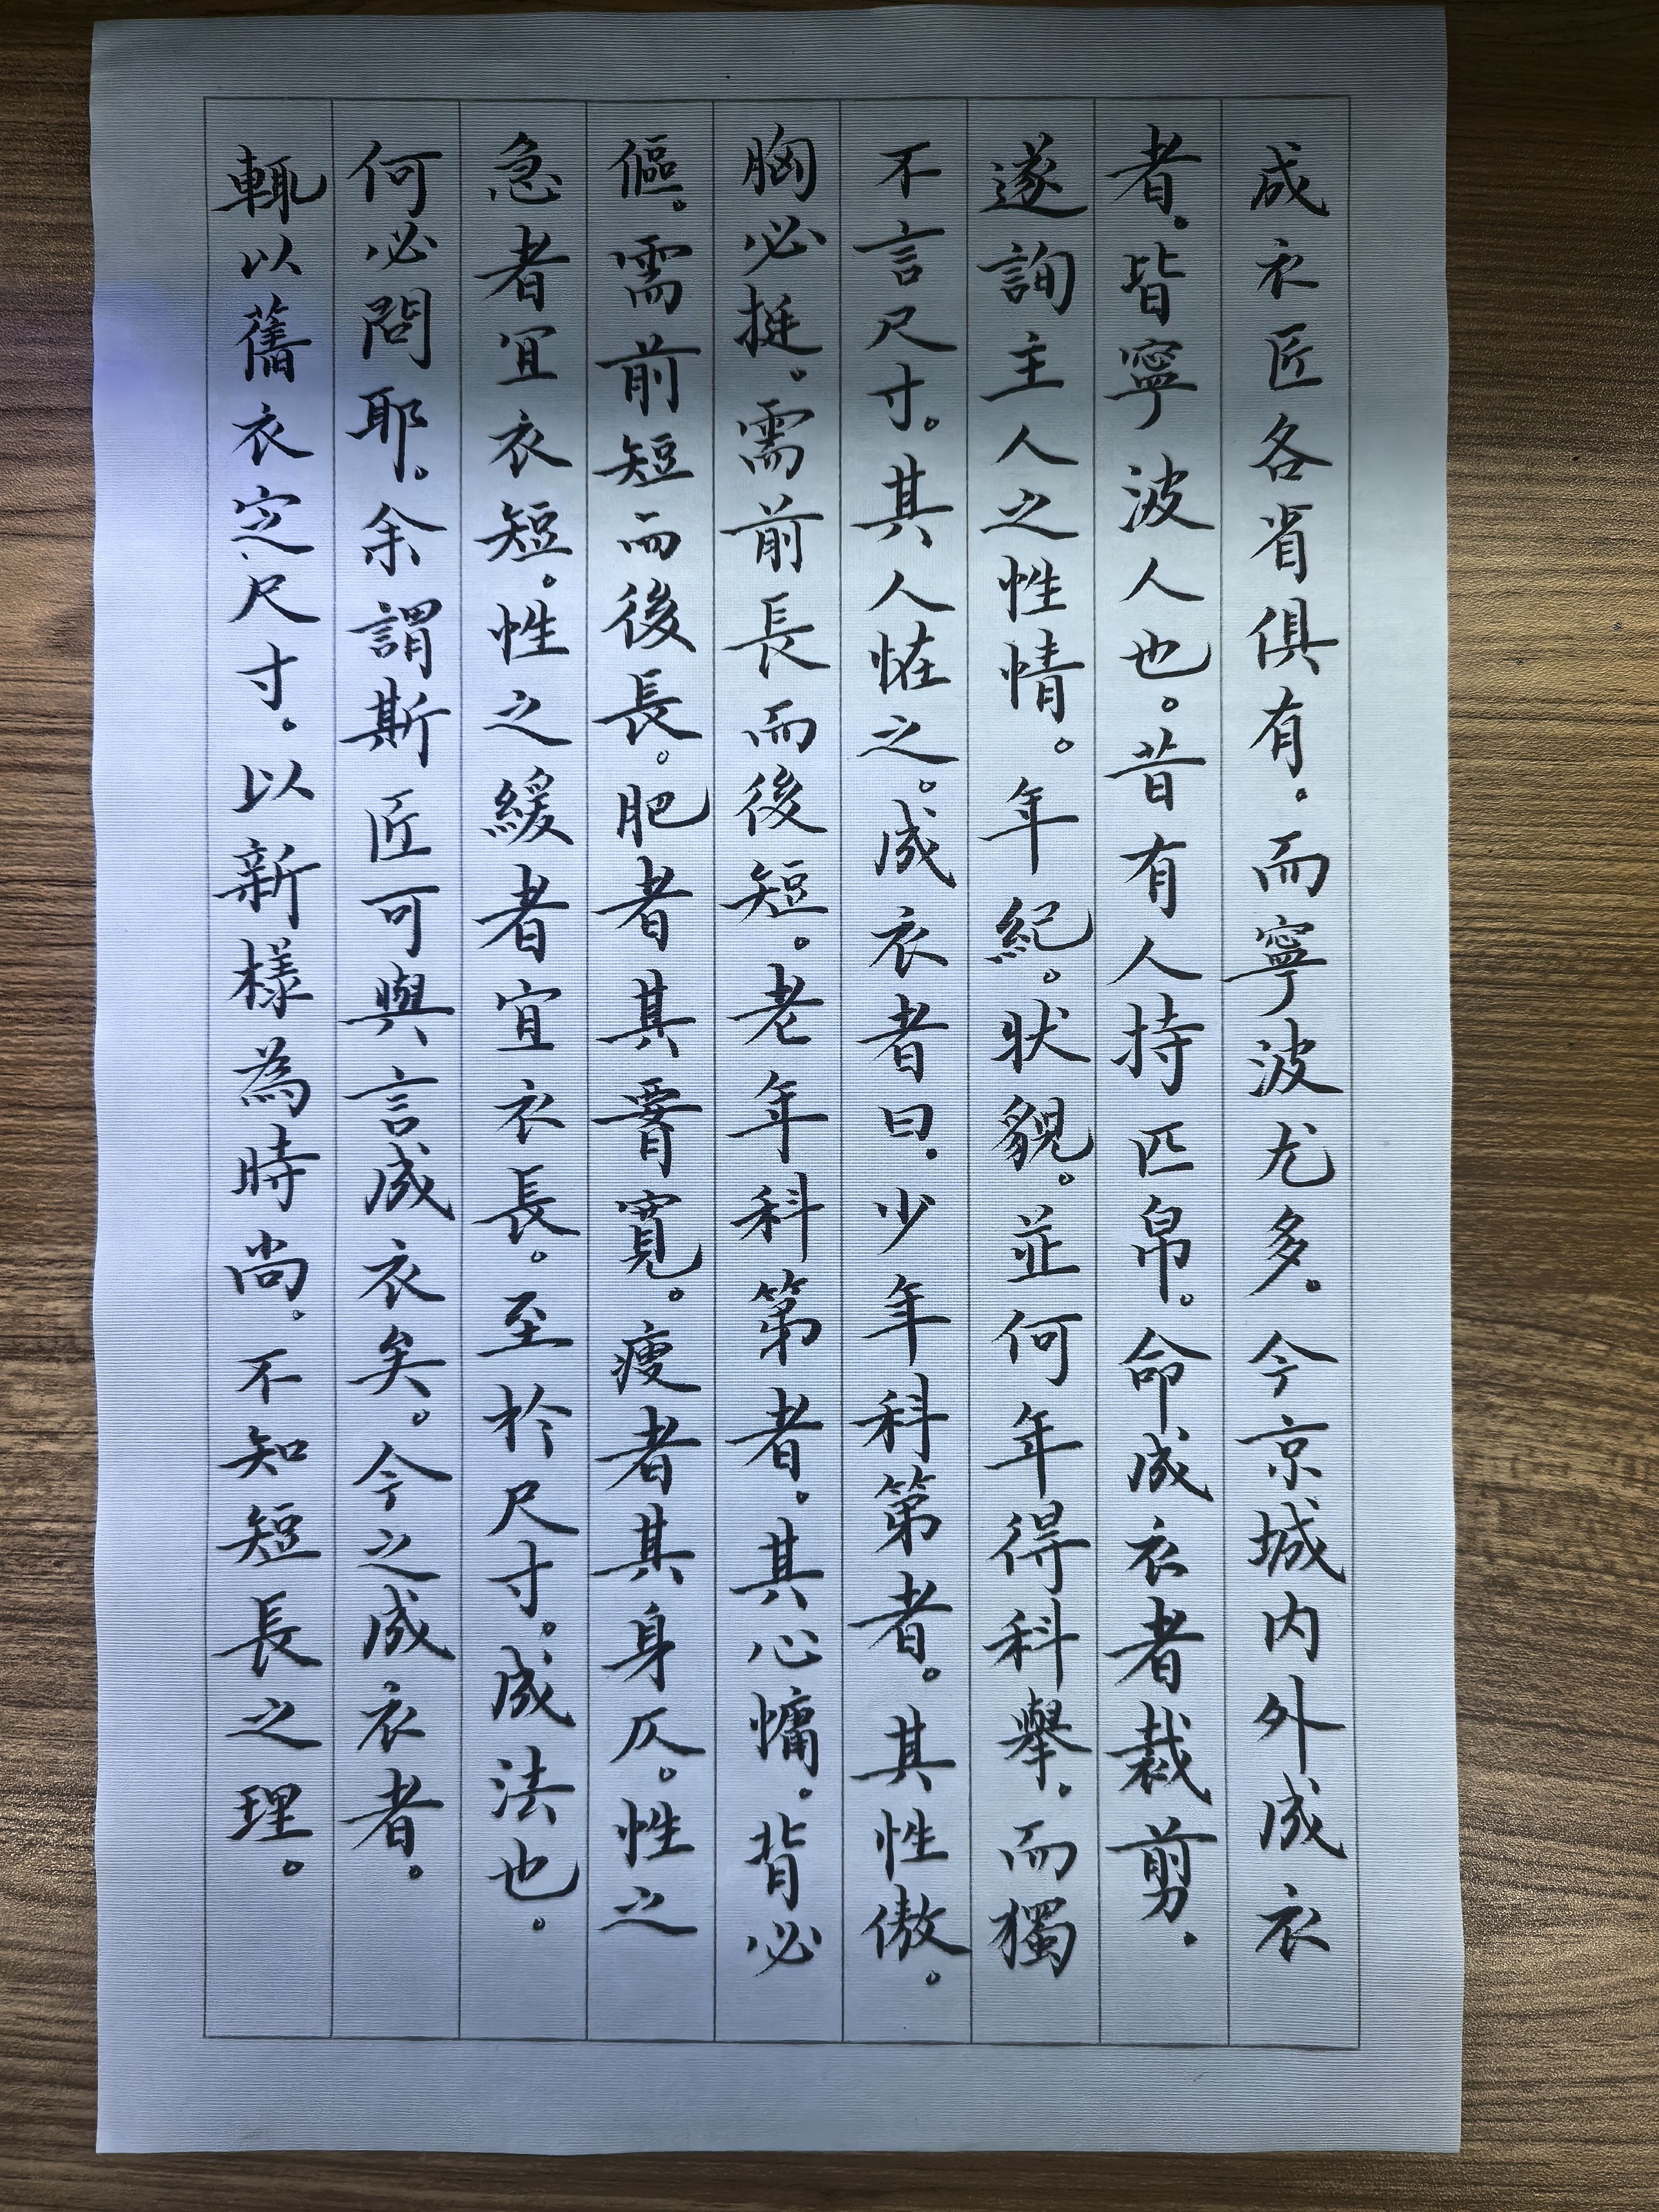 成衣匠各省俱有。而寧波尤多。今京城内外成衣
者。皆寧波人也。昔有人持匹帛。命成衣者裁剪。
遂詢主人之性情。年紀。状貌。並何年得科舉。而獨
不言尺寸。其人恠之。成衣者曰.少年科第者。其性傲。
胸必挺。需前長而後短。老年科第者。其心慵。背必
傴。需前短而後長。肥者其要寬。瘦者其身仄。性之
急者宜衣短。性之緩者宜衣長。至於尺寸。成法也。
何必問耶。余謂斯匠可與言成衣矣。今之成衣者。
輒以舊衣定尺寸。以新樣為時尚。不知短長之理。